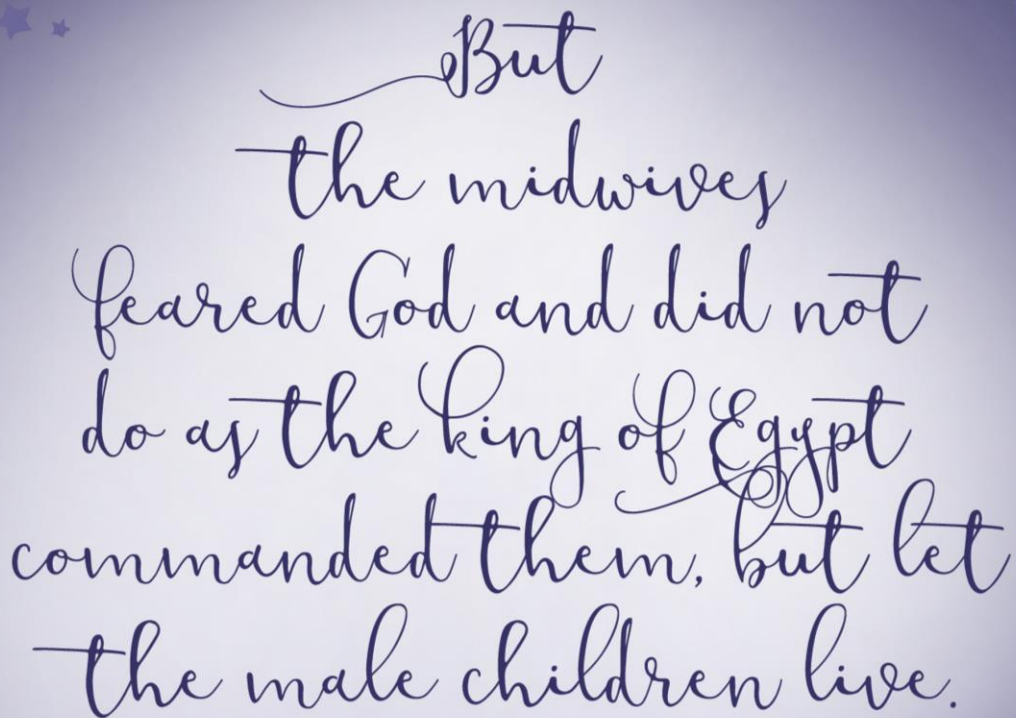 But
the midwives
feared God and did not
do as the king of Egypt
commanded them, but let
the male children live.